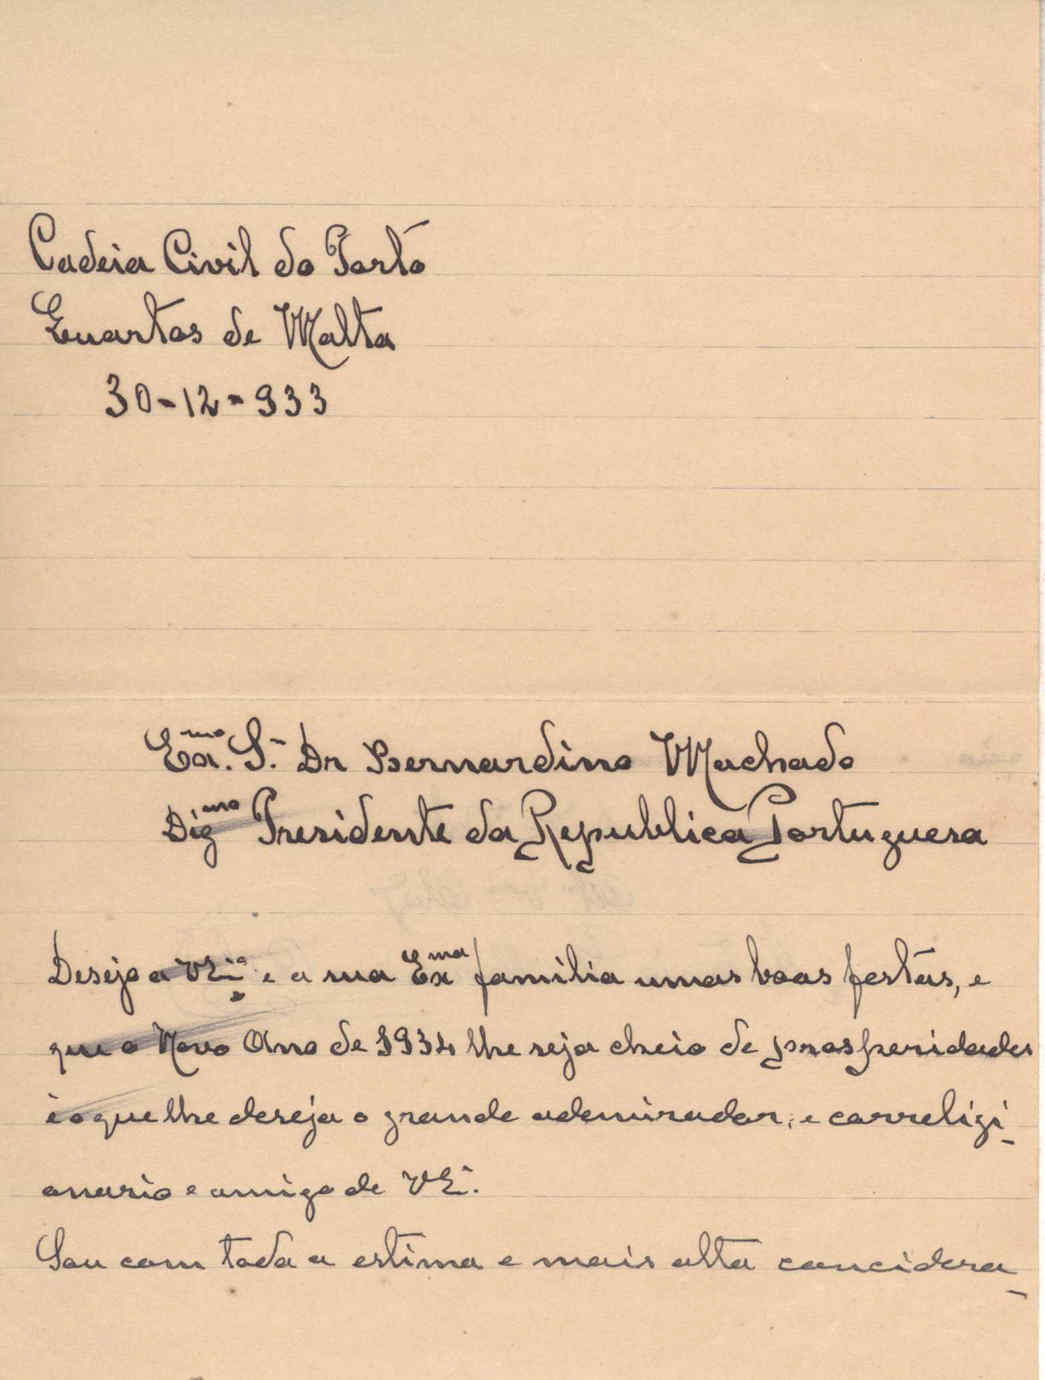 Cadeia Civil do Porto
Quartos de Malta
30-12-933
Exmo. Sr. Dr Bernardino Machado
Digmo Presidente da Republica Portuguesa
Desejo a VEia e a sua Exma familia umas boas festas, e
que o Novo Ano de 1934 lhe seja cheio de prosperidades
é o que lhe deseja o grande ademirador, e correligi-
onario e amigo de VEª.
Sou com toda a estima e mais alta concidera-